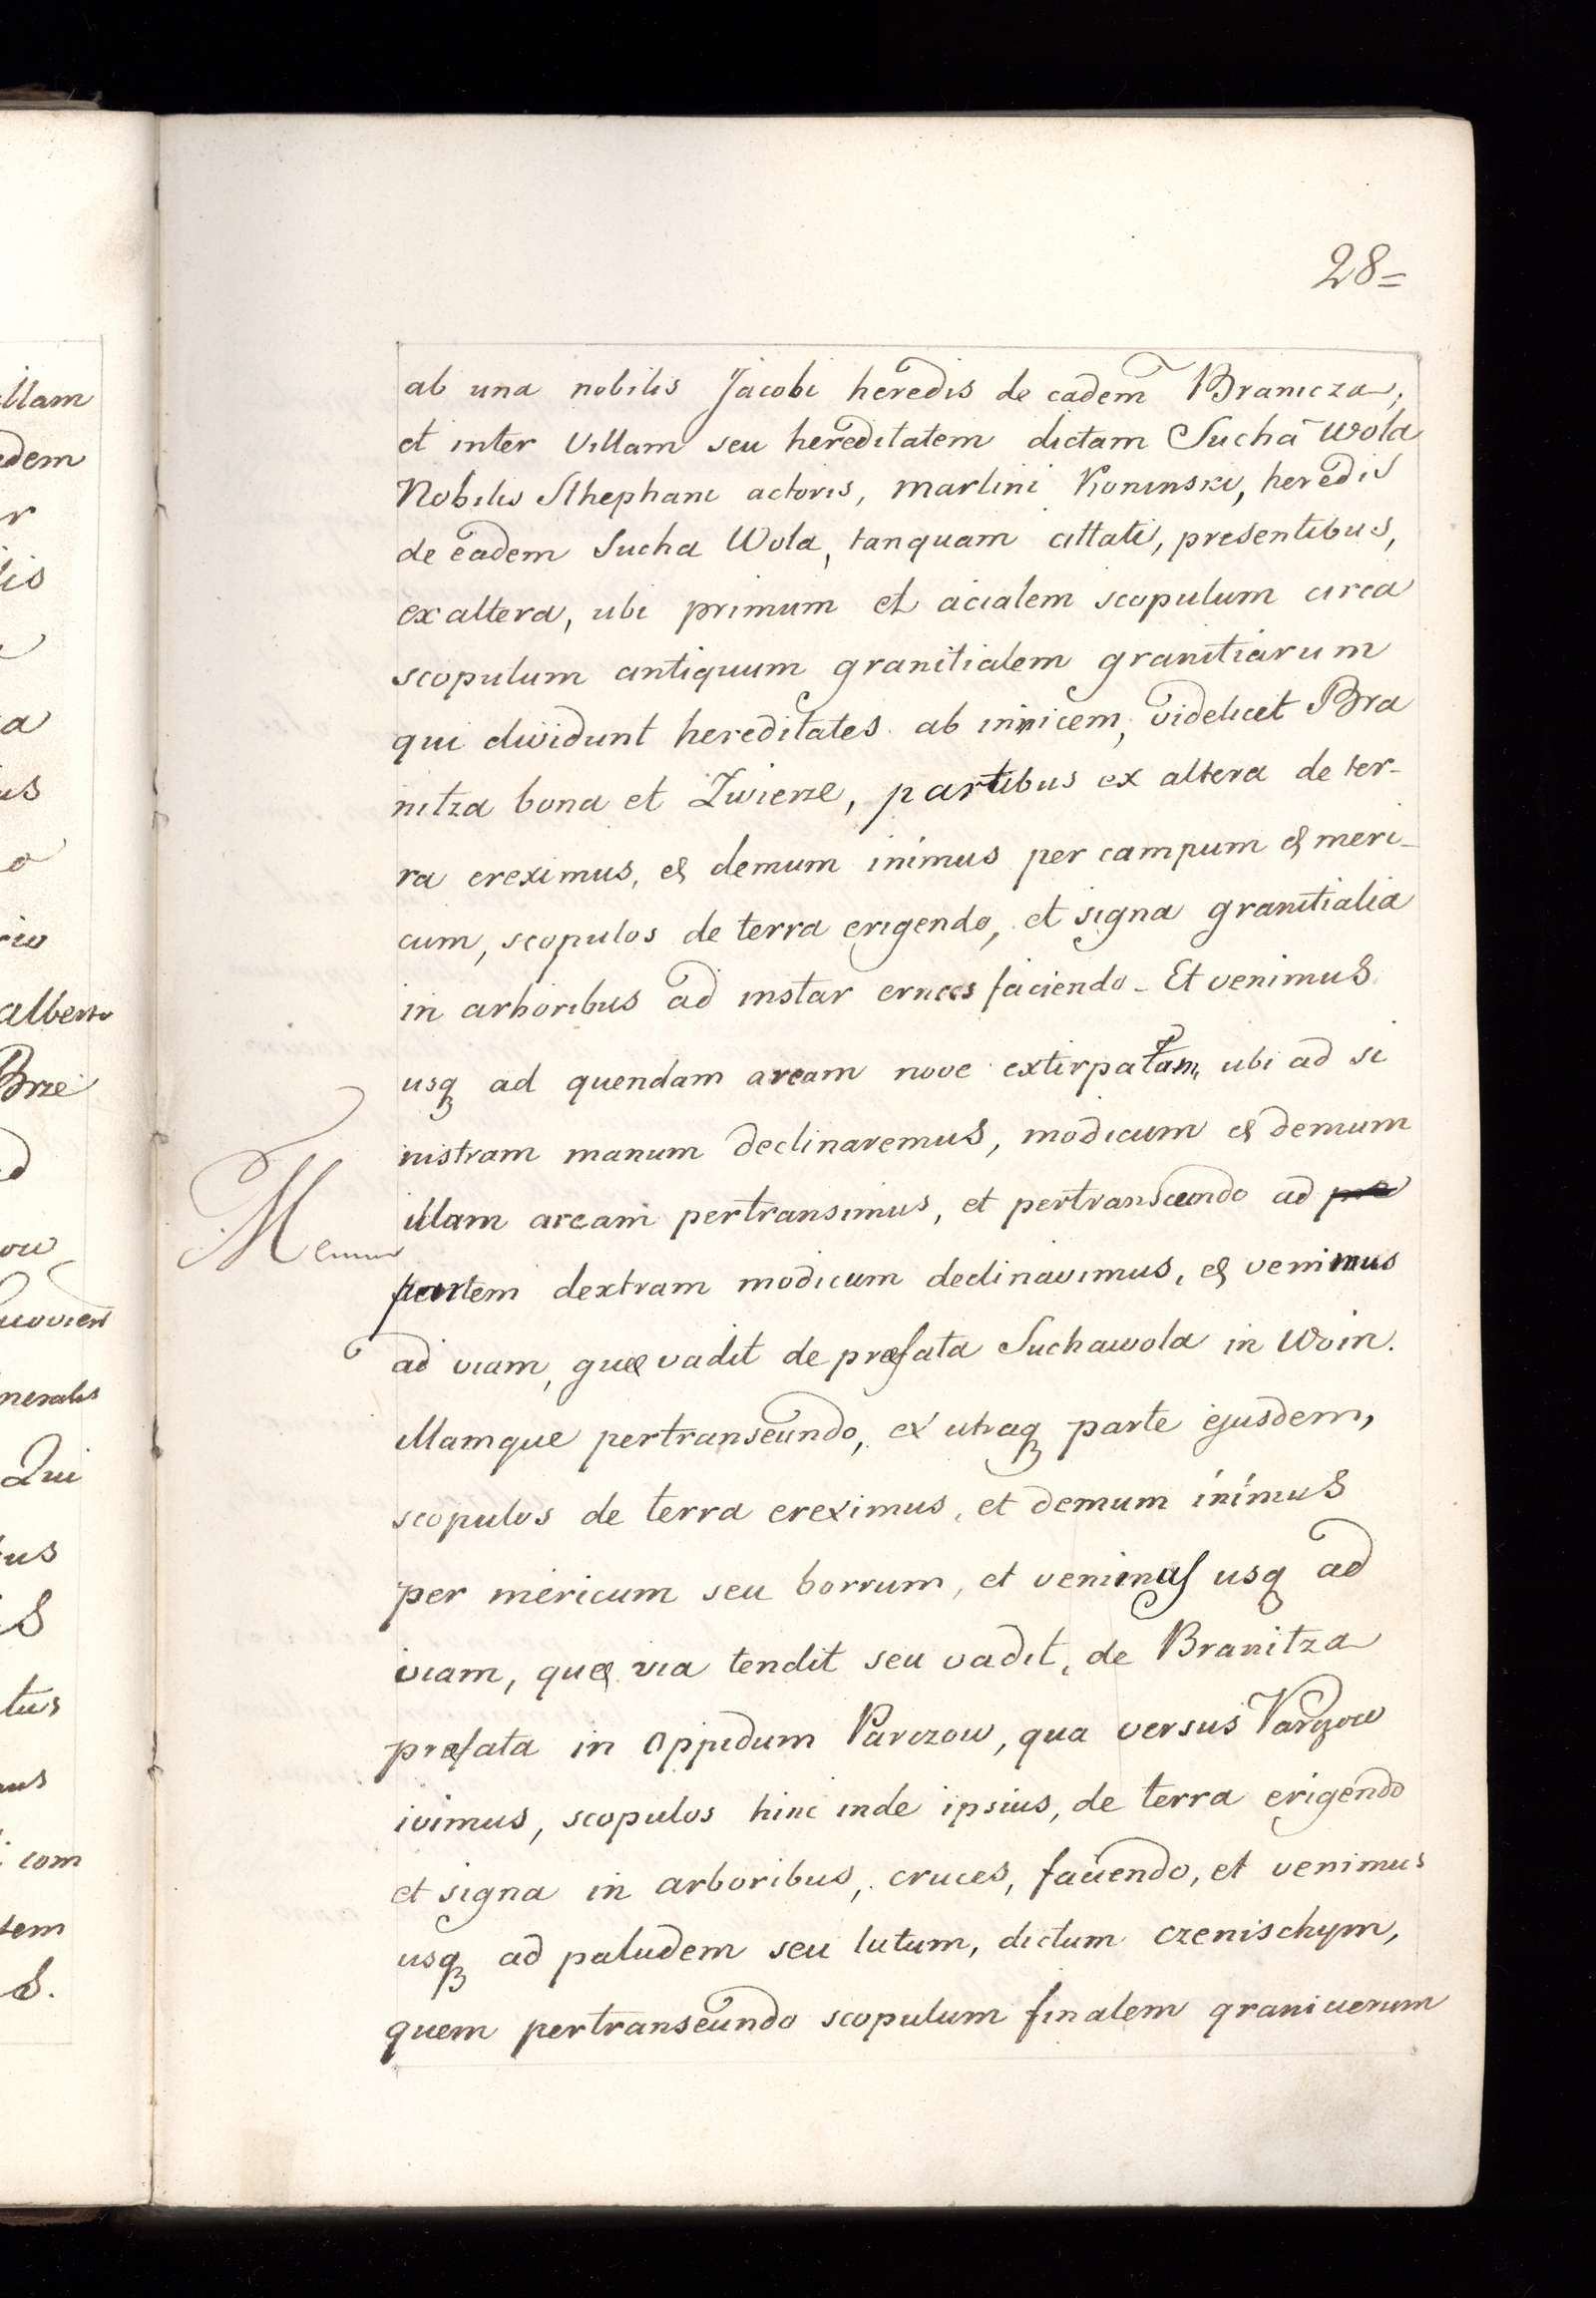 28=
ab una nobilis Jacobi heredis de eadem Branicza,
et inter Villam seu hereditatem dictam Sucha Wola
Nobilis Sthephani actoris, Martini Koninski, heredis
de eadem Sucha Wola, tanquam cittati, presentibus,
ex altera, ubi primum et acialem scopulum circa
scopulum antiquum granitialem granitiarum
qui dividunt hereditates ab innicem, videlicet Bra
nitza bona et Zwierze, partibus ex altera de ter-
ra ereximus, et demum inimus per campum et meri-
cum, scopulos de terra erigendo, et signa granitialia
in arboribus ad instar cruces faciendo - Et venimus
usq ad quendam aream nove extirpatam, ubi ad si
nistram manum declinaremus, modicum et demum
illam aream pertransimus, et pertranseundo ad
partem dextram modicum declinavimus, et venimus
ad viam, quæ vadit de præfata Suchawola in Woin.
illamque pertranseundo, ex utraq parte ejusdem,
scopulos de terra ereximus, et demum inimus
per mericum seu borrum, et venimus usq ad
viam, quæ via tendit seu vadit, de Branitza
præfata in Oppidum Parczow, qua versus Parczow
ivimus, scopulos hinc inde ipsius, de terra erigendo
et signa in arboribus, cruces, faciendo, et venimus
usq ad paludem seu lutum, dictum czenischym,
quem pertranseundo scopulum finalem granicierum
illam
edem
r
lis
a
us
o
rio
alberto
Brze
d
ow
neralis
Qui
tus
is
tus
mus
com
tem
s.